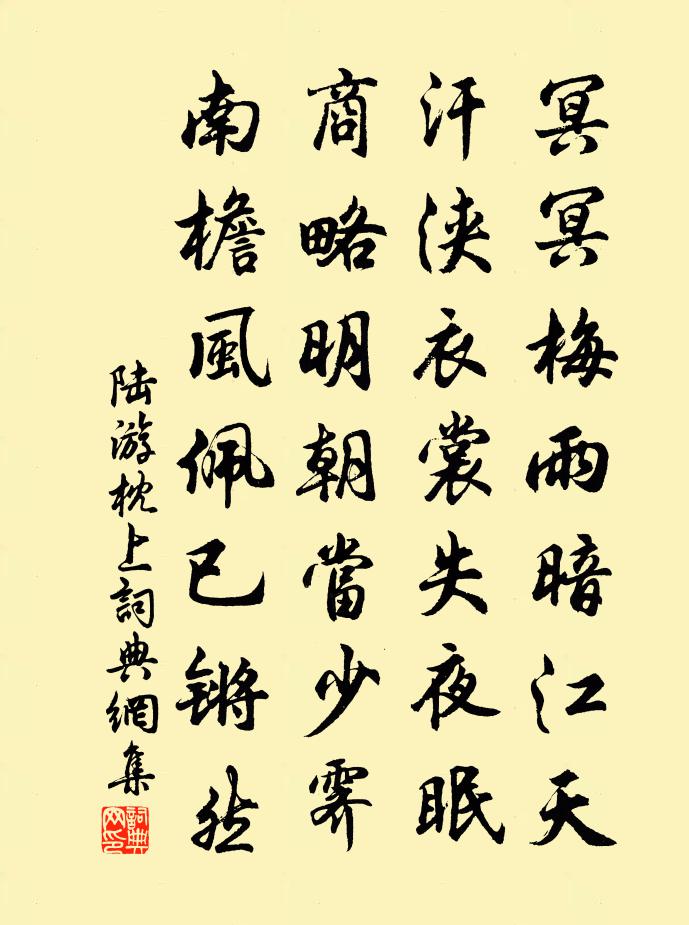 冥冥梅雨暗江天
汗浹衣裳失夜眠
商略明朝當少霽
南檐風佩已锵然
陆游枕上詞典網集
詞典网印